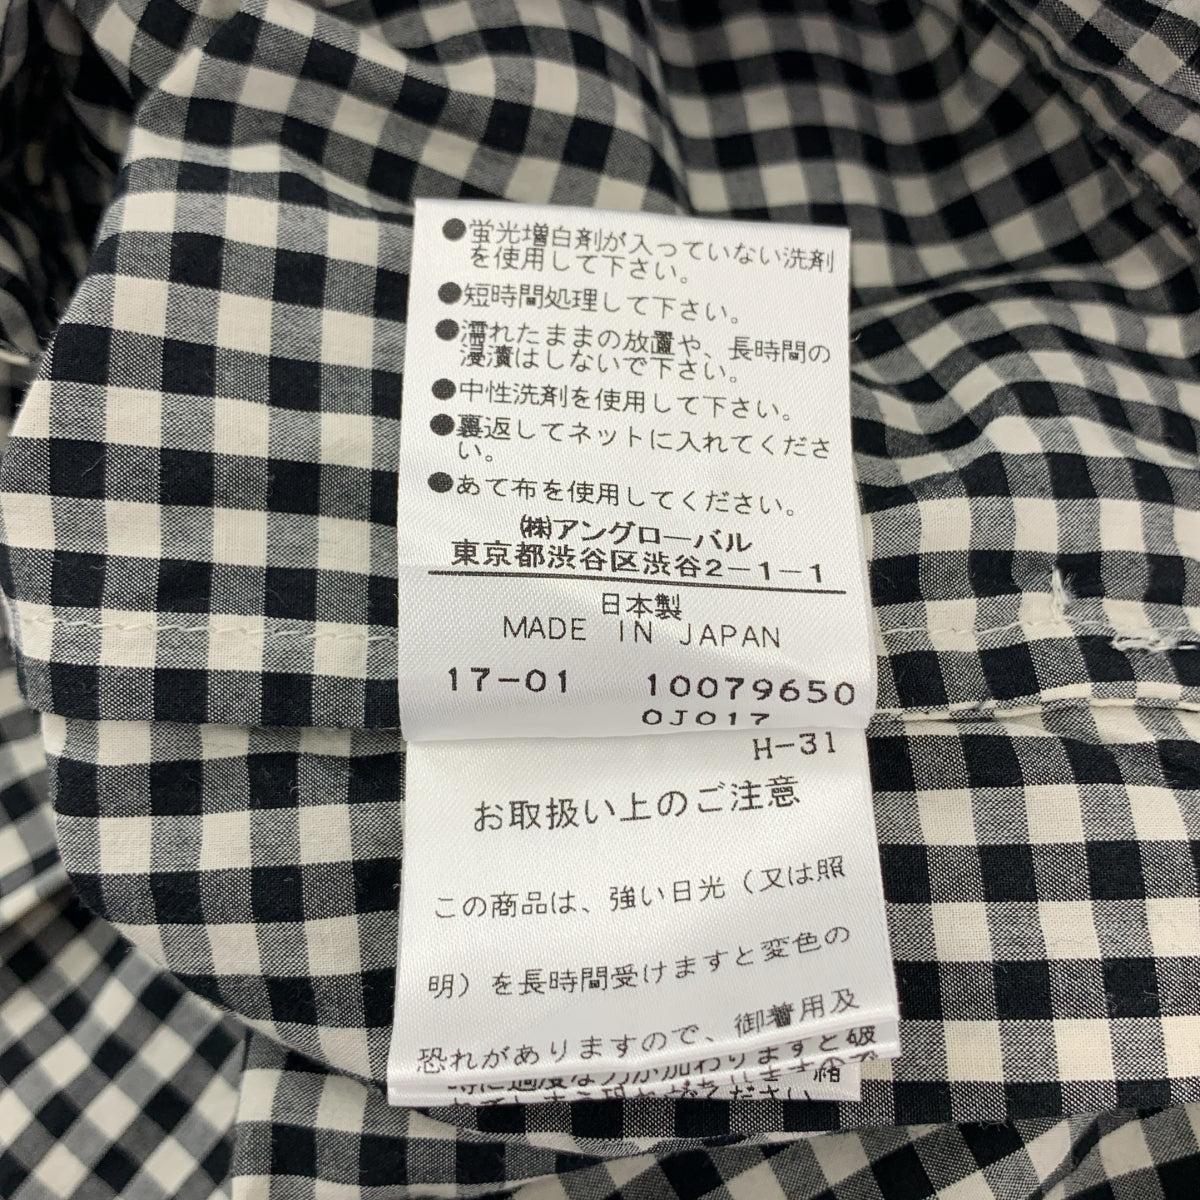 ●蛍光増白剤が入っていない洗剤
を使用して下さい。
●短時間処理して下さい。
●濡れたままの放置や、長時間の
浸漬はしないで下さい。
●中性洗剤を使用して下さい。
●裏返してネットに入れてくださ
い。
●あて布を使用してください。
㈱アングローバル
東京都渋谷区渋谷2-1-1
日本製
MADE IN JAPAN
17-01 10079650
0J017
H-31
お取扱い上のご注意
この商品は、強い日光（又は照
明）を長時間受けますと変色の
恐れがありますので、御着用及
力が加わりますと破